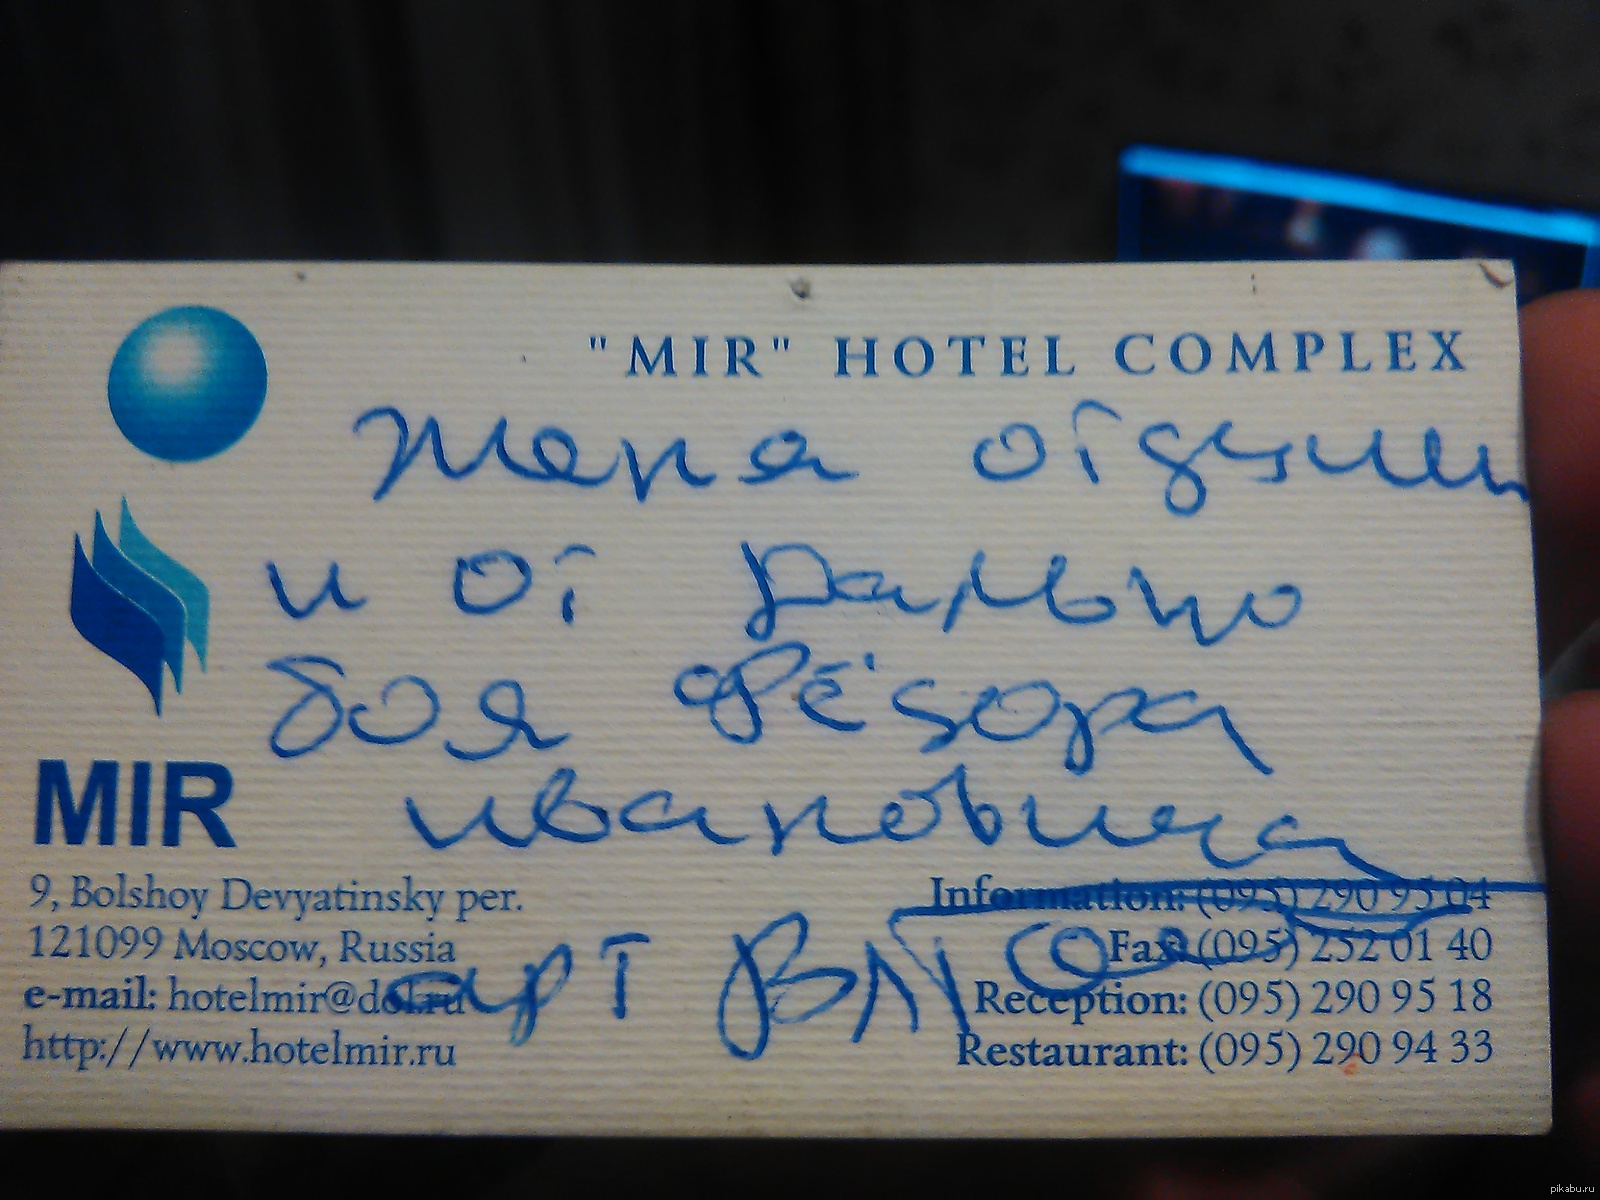 "MIR" HOTEL COMPLEX
и от
боя Фёдора
ивановича
MIR
9, Bolshoy Devyatinsky per.
121099 Moscow, Russia
e-mail: hotelmir@dol.ru
http://www.hotelmir.ru
Information: (095) 290 95 04
Fax: (095) 252 01 40
Reception: (095) 290 95 18
Restaurant: (095) 290 94 33
арт
pikabu.ru